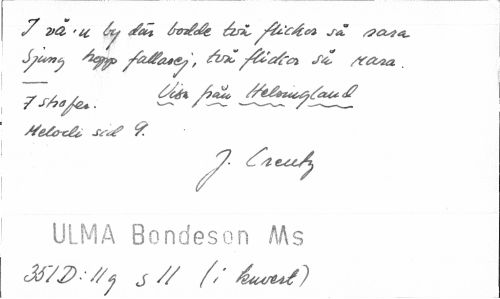 I vå'u by där bodde två flickor så rara
Sjung hopp fallerej, två flickor så rara.
7 strofer. Visa från Helsingland
Melodi sid 9.
J. Creutz
ULMA Bondeson Ms
351D:11g s 11 (i kuvert)